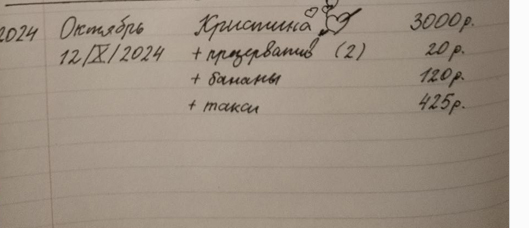 2024 Октябрь Кристина 3000р.
12/X/2024 + презерватив (2) 20р.
+ бананы 120р.
+ такси 425р.